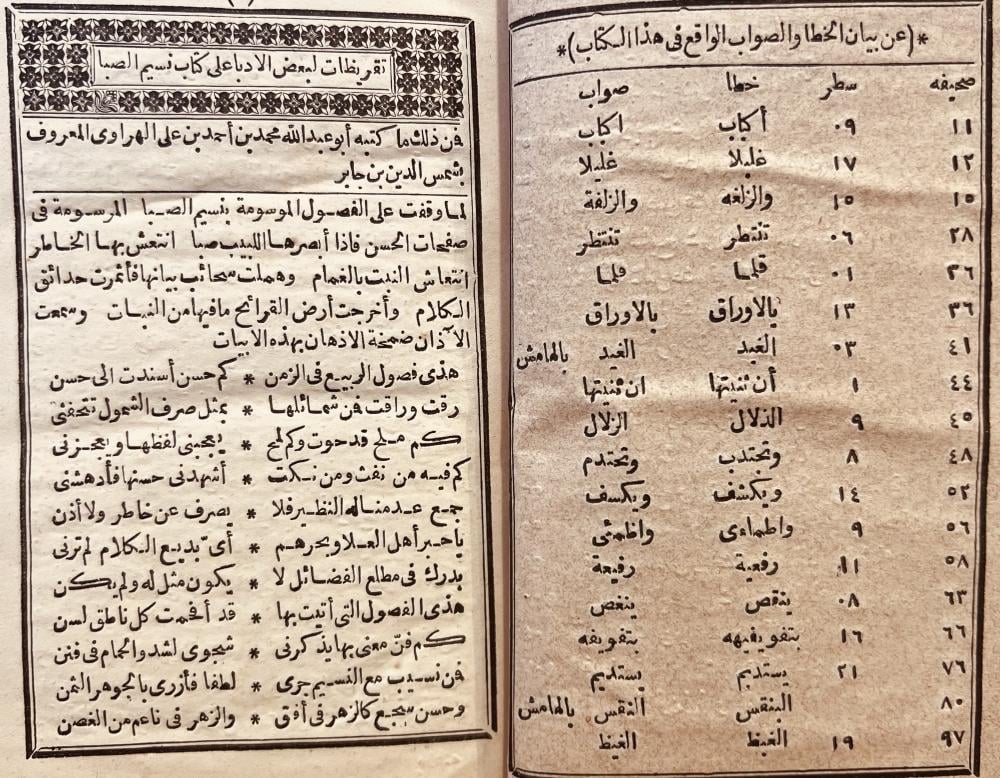 *(عن بيان الخطا والصواب الواقع فى هذا الكتاب)*
صحيفه سطر خطا صواب
١١ ٠٩ أكاب اكاب
١٢ ١٧ غليلا غليلا
١٥ ١٥ والزلغه والزلفة
٢٨ ٠٦ تنتطر تنتظر
٣٦ ٠١ قلما فلما
٣٦ ١٣ يالاوراق بالاوراق
٤١ ٠٣ الغيد الغيد بالهامش
٤٤ ١ أن ثنيتها ان ثنيتها
٤٥ ٩ الذلال الزلال
٤٨ ٨ وتجتدب وتحتدم
٥٢ ١٤ ويكشف ويكسف
٥٦ ٩ واطماءى واظمئى
٥٨ ١١ رفعية رفيعة
٦٣ ٠٨ ينقص ينغص
٦٦ ١٦ بتفويفيهه بتفويفه
٧٦ ٢١ يستدبم يستديم
٨٠ البنقس النقس بالهامش
٩٧ ١٩ الغبظ الغيظ
تقريظات لبعض الادبا على كتاب نسيم الصبا
فن ذلك ما كتبه أبو عبد الله محمد بن أحمد بن على الهراوى المعروف
بشمس الدين بن جابر
لما وقفت على الفصول الموسومة بنسيم الصبا المرسومة فى
صفحات الحسن فاذا أبصرها اللبيب صبا انتعش بها الخاطر
انتعاش النبت بالغمام وهملت سحائب بيانها فأثمرت حدائق
الكلام وأخرجت أرض القرائح مافيها من النبات وسمعت
الآذان ضمخة الاذهان بهذه الابيات
هذى فصول الربيع فى الزمن * كم حسن أسندت الى حسن
رقت وراقت فن شمائلها * بمثل صرف الشمول تتحفنى
كم ملح قد حوت وكم لمح * يعجبنى لفظها ويعجزنى
كم فيه من نفث ومن نكت * أشهدنى حسنها فأدهشنى
جمع عدمنا له النظير فلا * يصرف عن خاطر ولا أذن
ياحبر أهل العلا وبحرهم * أى بديع الكلام لم ترنى
بدرك فى مطلع الفضائل لا * يكون مثل له ولم يكن
هذى الفصول التى أتيت بها * قد أفحمت كل ناطق لسن
كم فن معنى بها يذكرنى * شجوى لشدو الحمام فى فنن
فن نسيب مع النسيم جرى * لطفا فأزرى بالجوهر الثمن
وحسن سجع كالزهر فى أفق * والزهر فى ناعم من الغصن